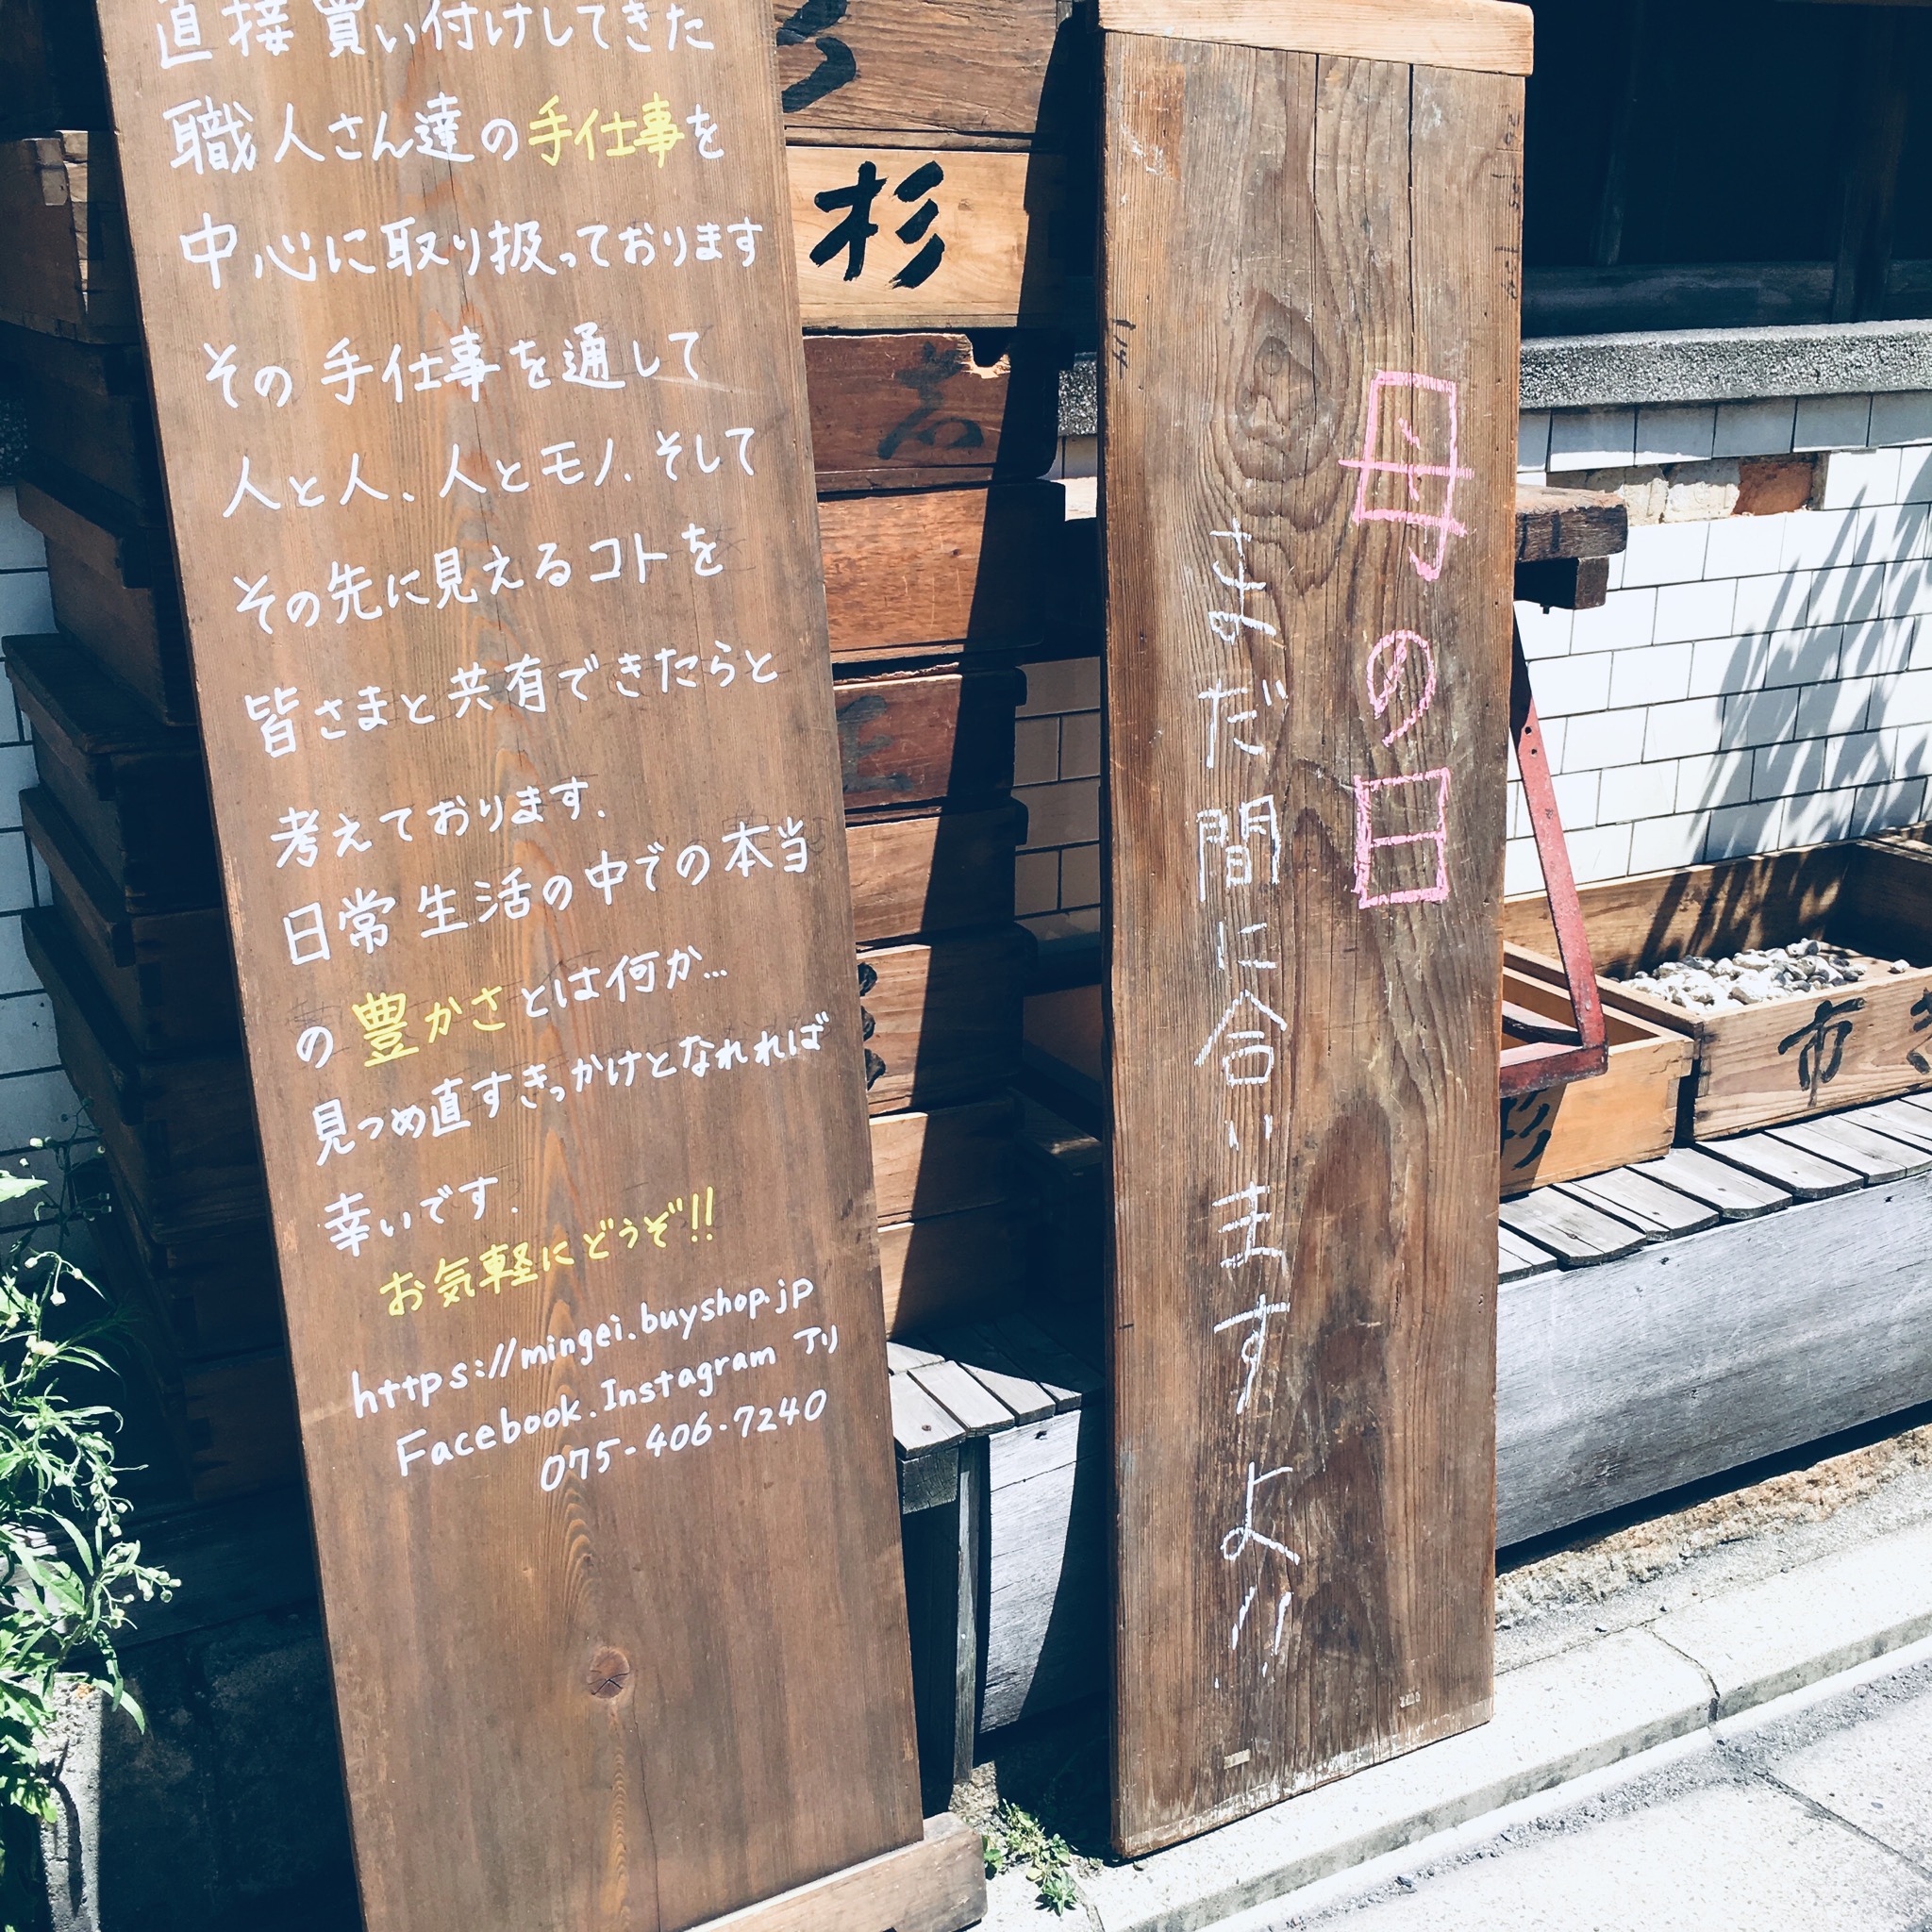 直接買い付けしてきた
職人さん達の手仕事を
中心に取り扱っております
その手仕事を通して
人と人、人とモノ、そして
その先に見えるコトを
皆さまと共有できたらと
考えております。
日常生活の中での本当
の豊かさとは何か…
見つめ直すきっかけとなれれば
幸いです。
お気軽にどうぞ!!
https://mingei.buyshop.jp
Facebook.Instagram アリ
075-406-7240
杉
母の日
まだ間に合いますよ!!
杉
市